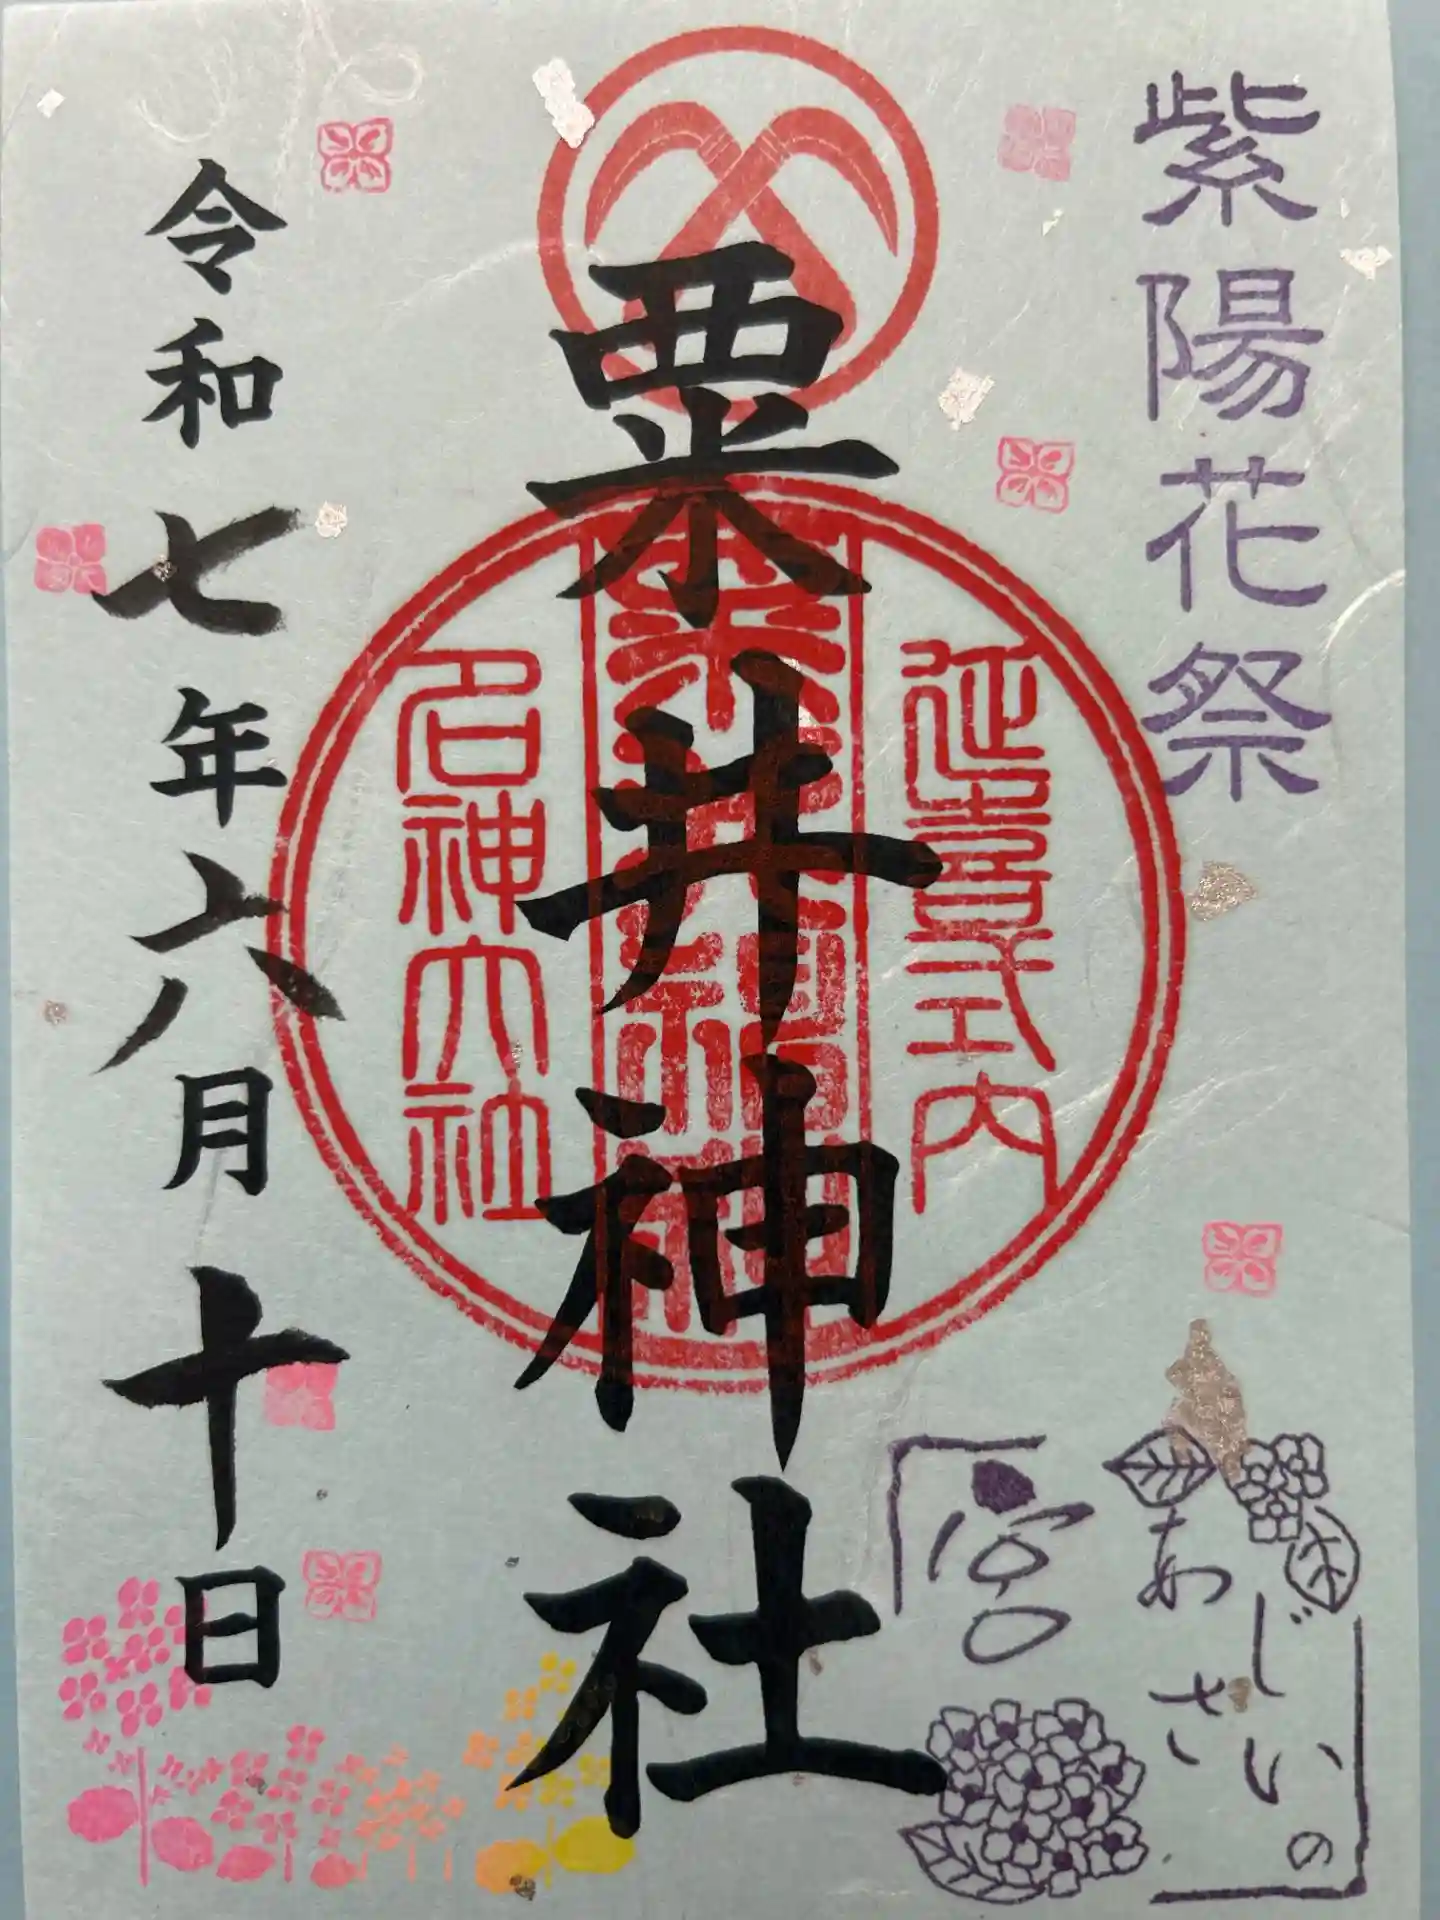 紫陽花祭
あじさいの宮
延喜式内
粟井神社
名神大社
粟井神社
令和七年六月十日